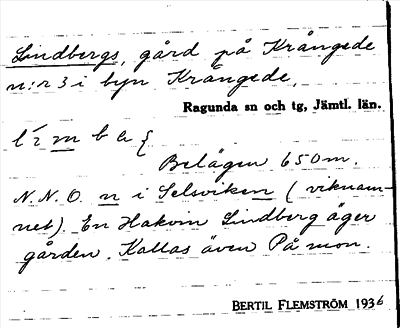 Lindbergs, gård på Krångede
n:r 3 i byn Krångede,
Ragunda sn och tg, Jämtl. län.
Belägen 650 m.
N.N.O. n i Selsviken (viknam-
net). En Hakom Lindberg äger
gården. Kallas även På mon.
BERTIL FLEMSTRÖM 1936